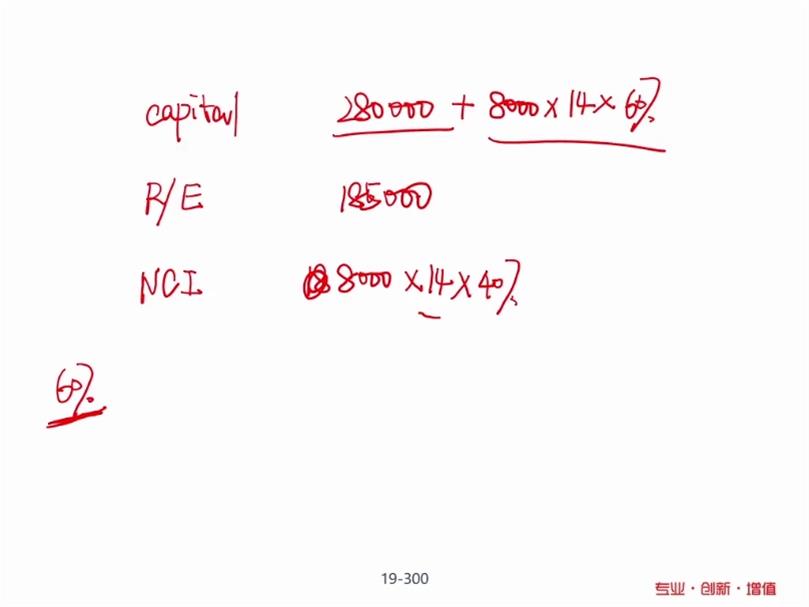 capital 280000 + 8000 × 14 × 60%
R/E 185000
NCI 8000 × 14 × 40%
60%
19-300
专业·创新·增值